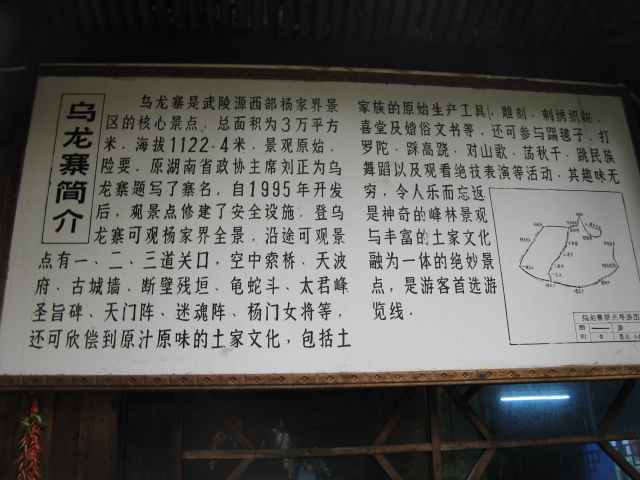 乌龙寨简介
乌龙寨是武陵源西部杨家界景
区的核心景点，总面积为3万平方
米，海拔1122.4米，景观原始、
险要．原湖南省政协主席刘正为乌
龙寨题写了寨名，自1995年开发
后，观景点修建了安全设施．登乌
龙寨可观杨家界全景，沿途可观景
点有一、二、三道关口，空中索桥、天波
府、古城墙、断壁残垣、龟蛇斗、太君峰
圣旨碑、天门阵、迷魂阵、杨门女将等，
还可欣偿到原汁原味的土家文化，包括土
家族的原始生产工具，雕刻、刺绣织锦、
喜堂及婚俗文书等，还可参与踢毽子、打
罗陀、踩高跷、对山歌、荡秋千、跳民族
舞蹈以及观看绝技表演等活动．其趣味无
穷，令人乐而忘返
是神奇的峰林景观
与丰富的土家文化
融为一体的绝妙景
点，是游客首选游
览线．
乌龙寨景点导游图
图 游
例 景点